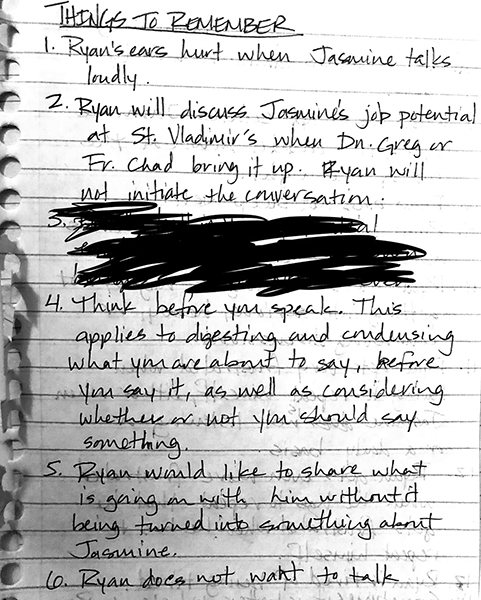 THINGS TO REMEMBER
1. Ryan's ears hurt when Jasmine talks
loudly.
2. Ryan will discuss Jasmine's job potential
at St. Vladimir's when Dn. Greg or
Fr. Chad bring it up. Ryan will
not initiate the conversation.
3.
4. Think before you speak. This
applies to digesting and condensing
what you are about to say, before
you say it, as well as considering
whether or not you should say
something.
5. Ryan would like to share what
is going on with him without it
being turned into something about
Jasmine.
6. Ryan does not want to talk